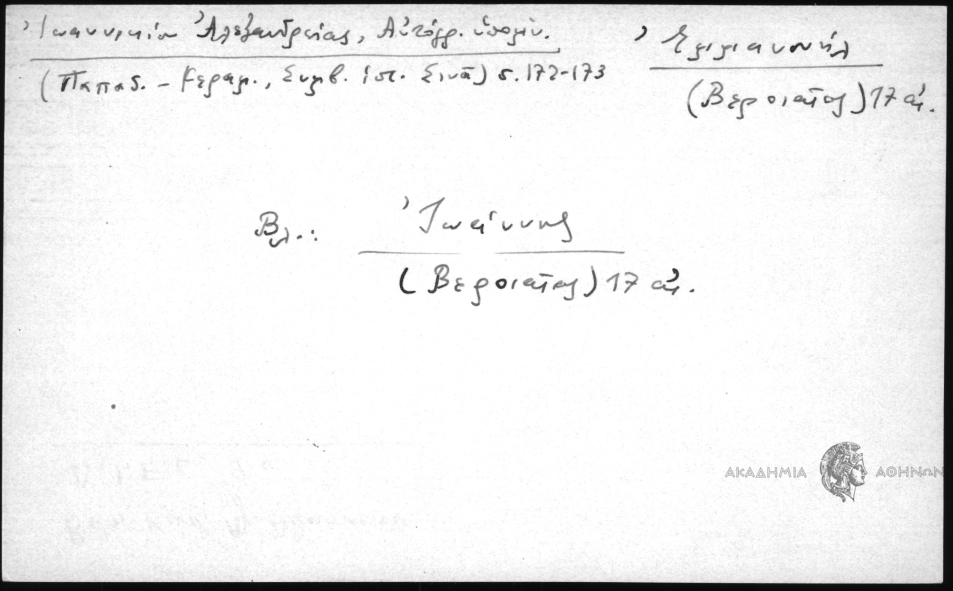 Ἰωαννικίου Ἀλεξανδρείας, Αὐτόγρ. ὑπόμν.
(Παπαδ. - Κεραμ., Συμβ. ἱστ. Σινᾶ) σ. 172-173
Ἐμμανουήλ
(Βεροιάτης) 17 αἰ.
Βλ.: Ἰωάννης
(Βεροιάτης) 17 αἰ.
ΑΚΑΔΗΜΙΑ ΑΘΗΝΩΝ